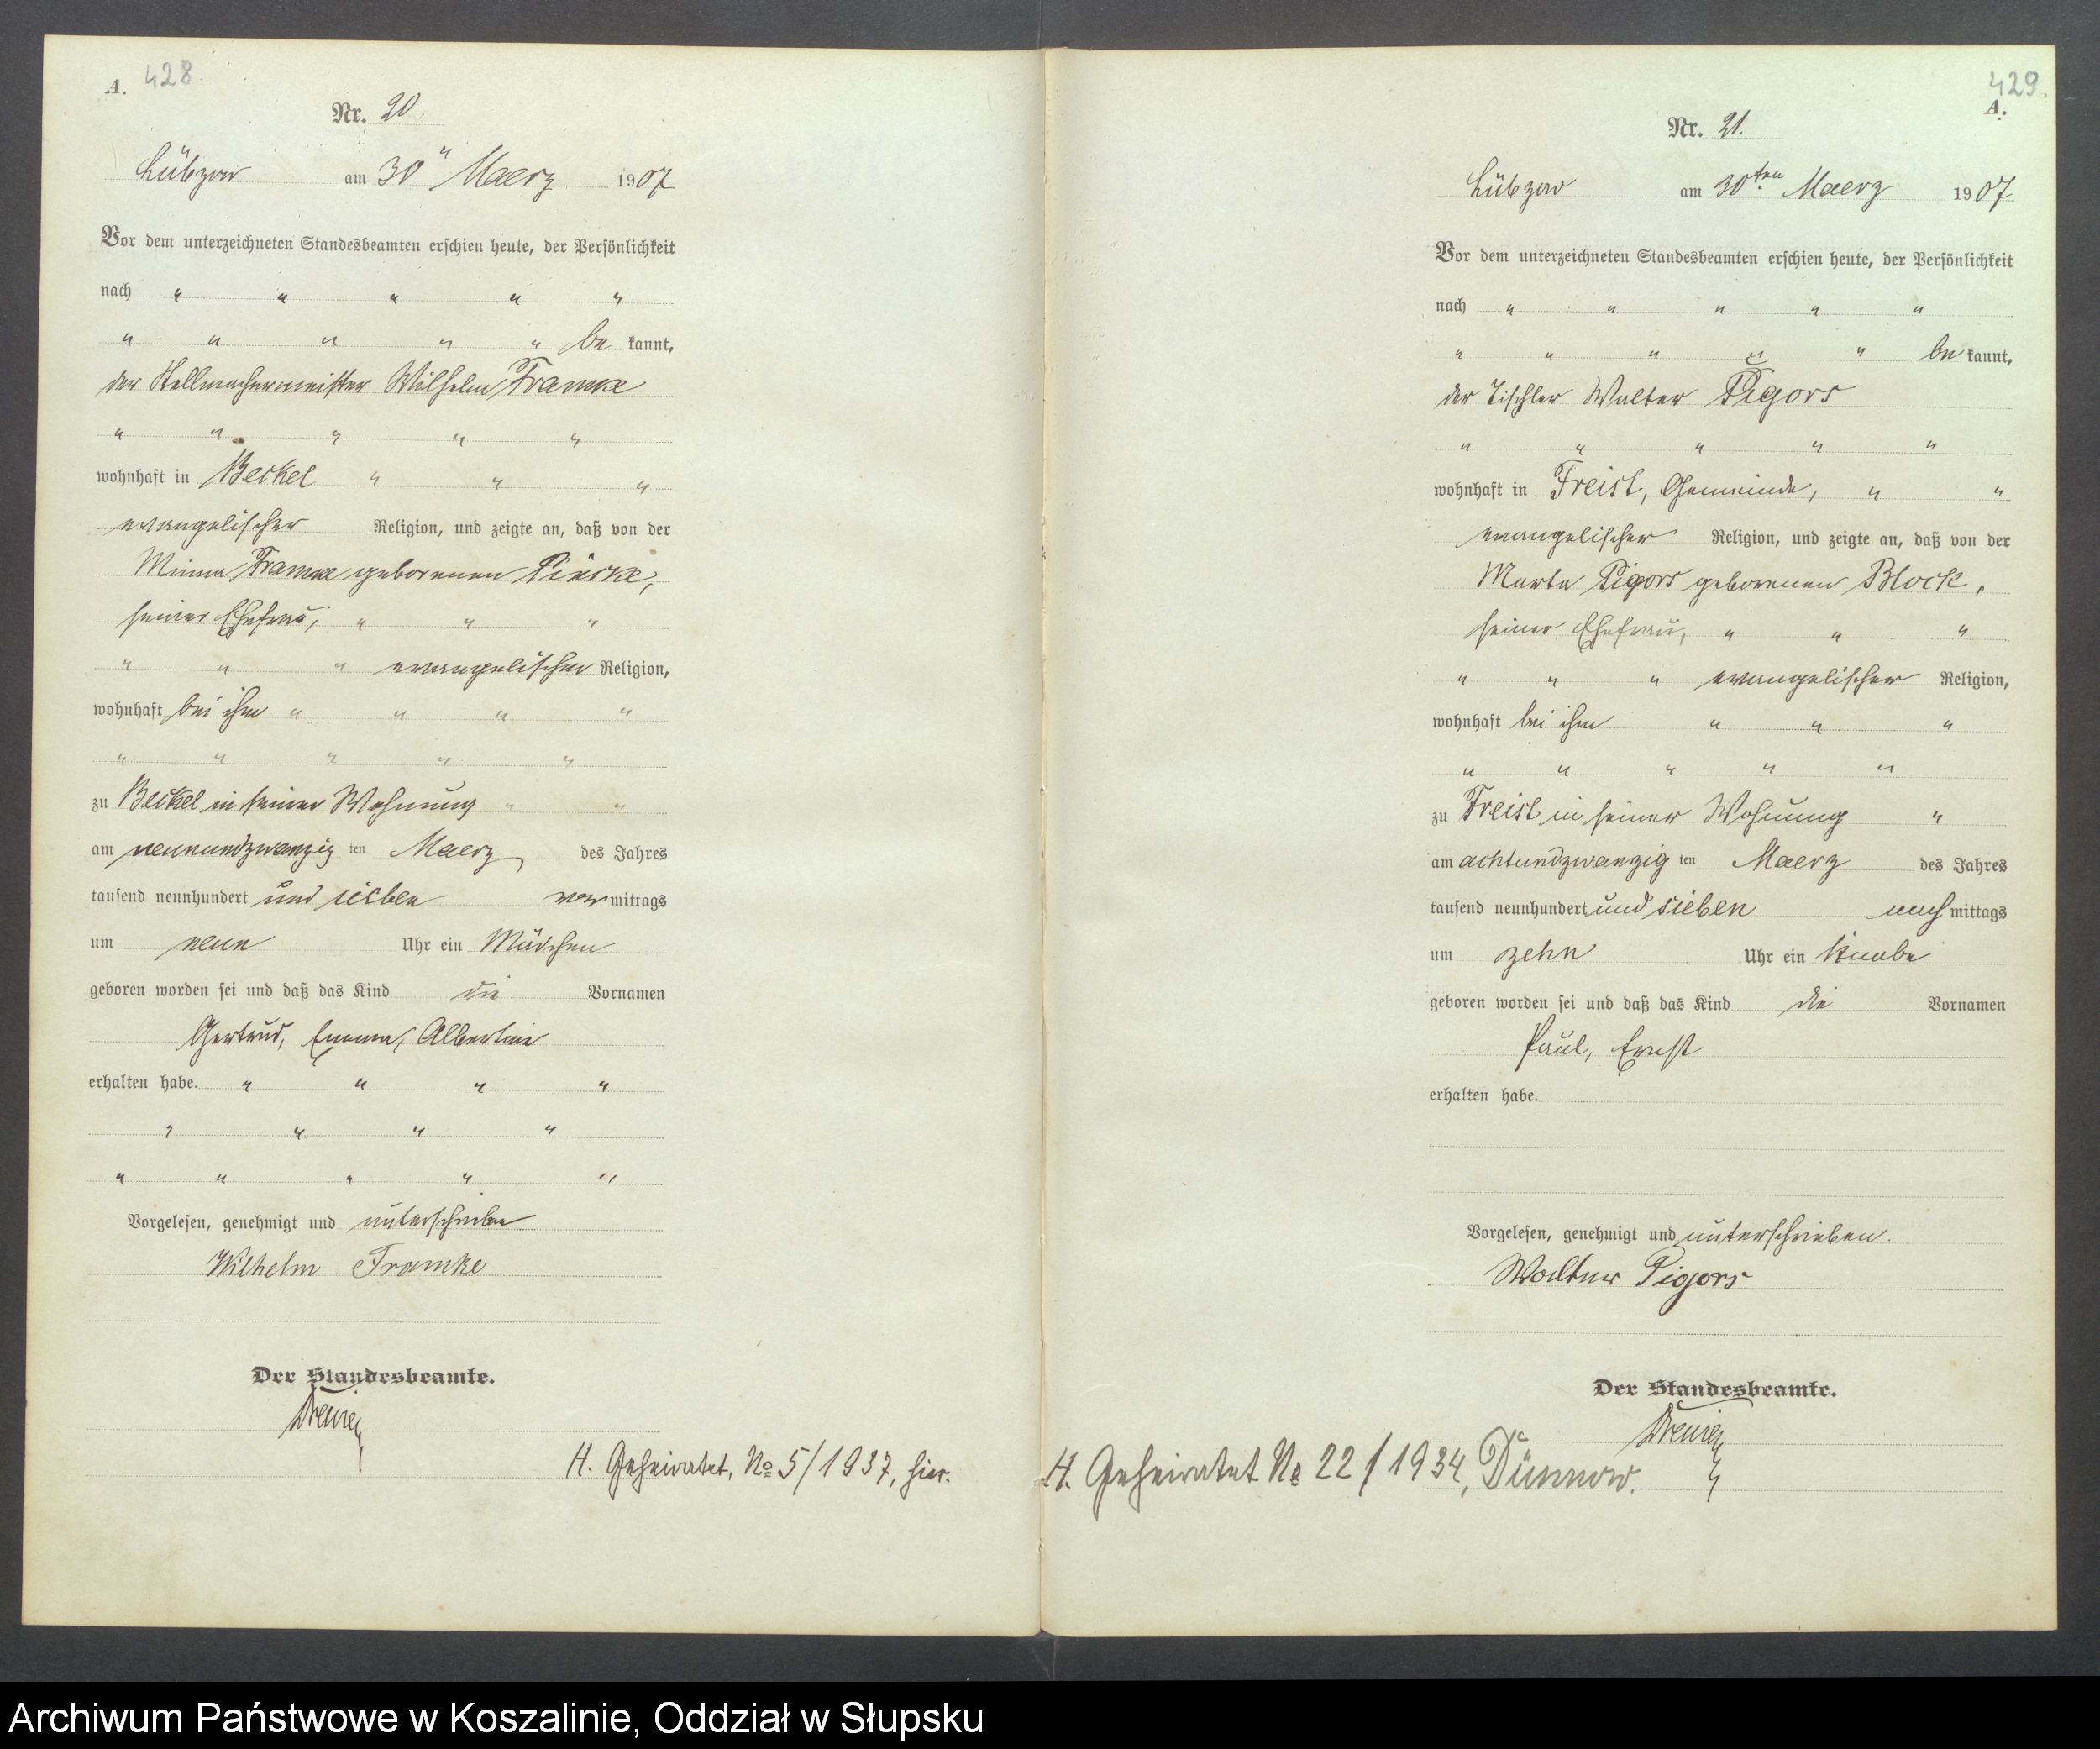 A. 428
Nr. 20
Lübzow am 30" Maerz 1907
Vor dem unterzeichneten Standesbeamten erschien heute, der Persönlichkeit
nach " " " " "
" " " " " be kannt,
der Stellmachermeister Wilhelm Framke
" " " " "
wohnhaft in Beckel " " "
evangelischer Religion, und zeigte an, daß von der
Minna Framke geborenen
seiner Ehefrau, " " "
" " " evangelischer Religion,
wohnhaft bei ihm " " " "
" " " " "
zu Beckel in seiner Wohnung " "
am neunundzwanzig ten Maerz des Jahres
tausend neunhundert und sieben vor mittags
um neun Uhr ein Mädchen
geboren worden sei und daß das Kind die Vornamen
Gertrud, Emma, Albertine
erhalten habe. " " " "
" " " "
" " " " "
Vorgelesen, genehmigt und unterschrieben
Wilhelm Framke
Der Standesbeamte.
H. Geheiratet, No 5/1937, hier.
429.
A.
Nr. 21.
Lübzow am 30ten Maerz 1907
Vor dem unterzeichneten Standesbeamten erschien heute, der Persönlichkeit
nach " " " " "
" " " " " be kannt,
der Tischler Walter Pigors
" " " " "
wohnhaft in Freist, Gemeinde, " "
evangelischer Religion, und zeigte an, daß von der
Marta Pigors geborenen Block,
seiner Ehefrau, " " "
" " " evangelischer Religion,
wohnhaft bei ihm " " "
" " " " "
zu Freist in seiner Wohnung "
am achtundzwanzig ten Maerz des Jahres
tausend neunhundert und sieben nach mittags
um zehn Uhr ein Knabe
geboren worden sei und daß das Kind die Vornamen
Paul, Ernst
erhalten habe.
Vorgelesen, genehmigt und unterschrieben.
Walter Pigors
Der Standesbeamte.
H. Geheiratet No 22/1934, Dünnow.
Archiwum Państwowe w Koszalinie, Oddział w Słupsku